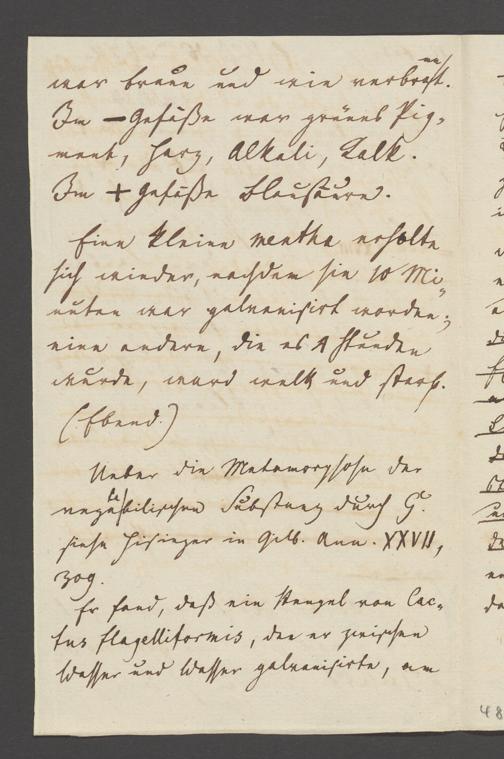 war braun und wie verbrannt.
Im — Gefäße war grünes Pig-
ment, Harz, Alkali, Kalk.
Im + Gefäße Blausäure.
Eine kleine Mentha erholte
sich wieder, nachdem sie 10 Mi-
nuten war galvanisirt worden;
eine andere, die es 4 Stunden
wurde, ward welk und starb.
(Ebend.)
Ueber die Metamorphose der
vegetabilischen Substanz durch G.
siehe Hisinger in Gilb. Ann. XXVII,
309.
Er fand, daß ein Stengel von Cac-
tus flagelliformis, den er zwischen
Wasser und Wasser galvanisirte, am
48